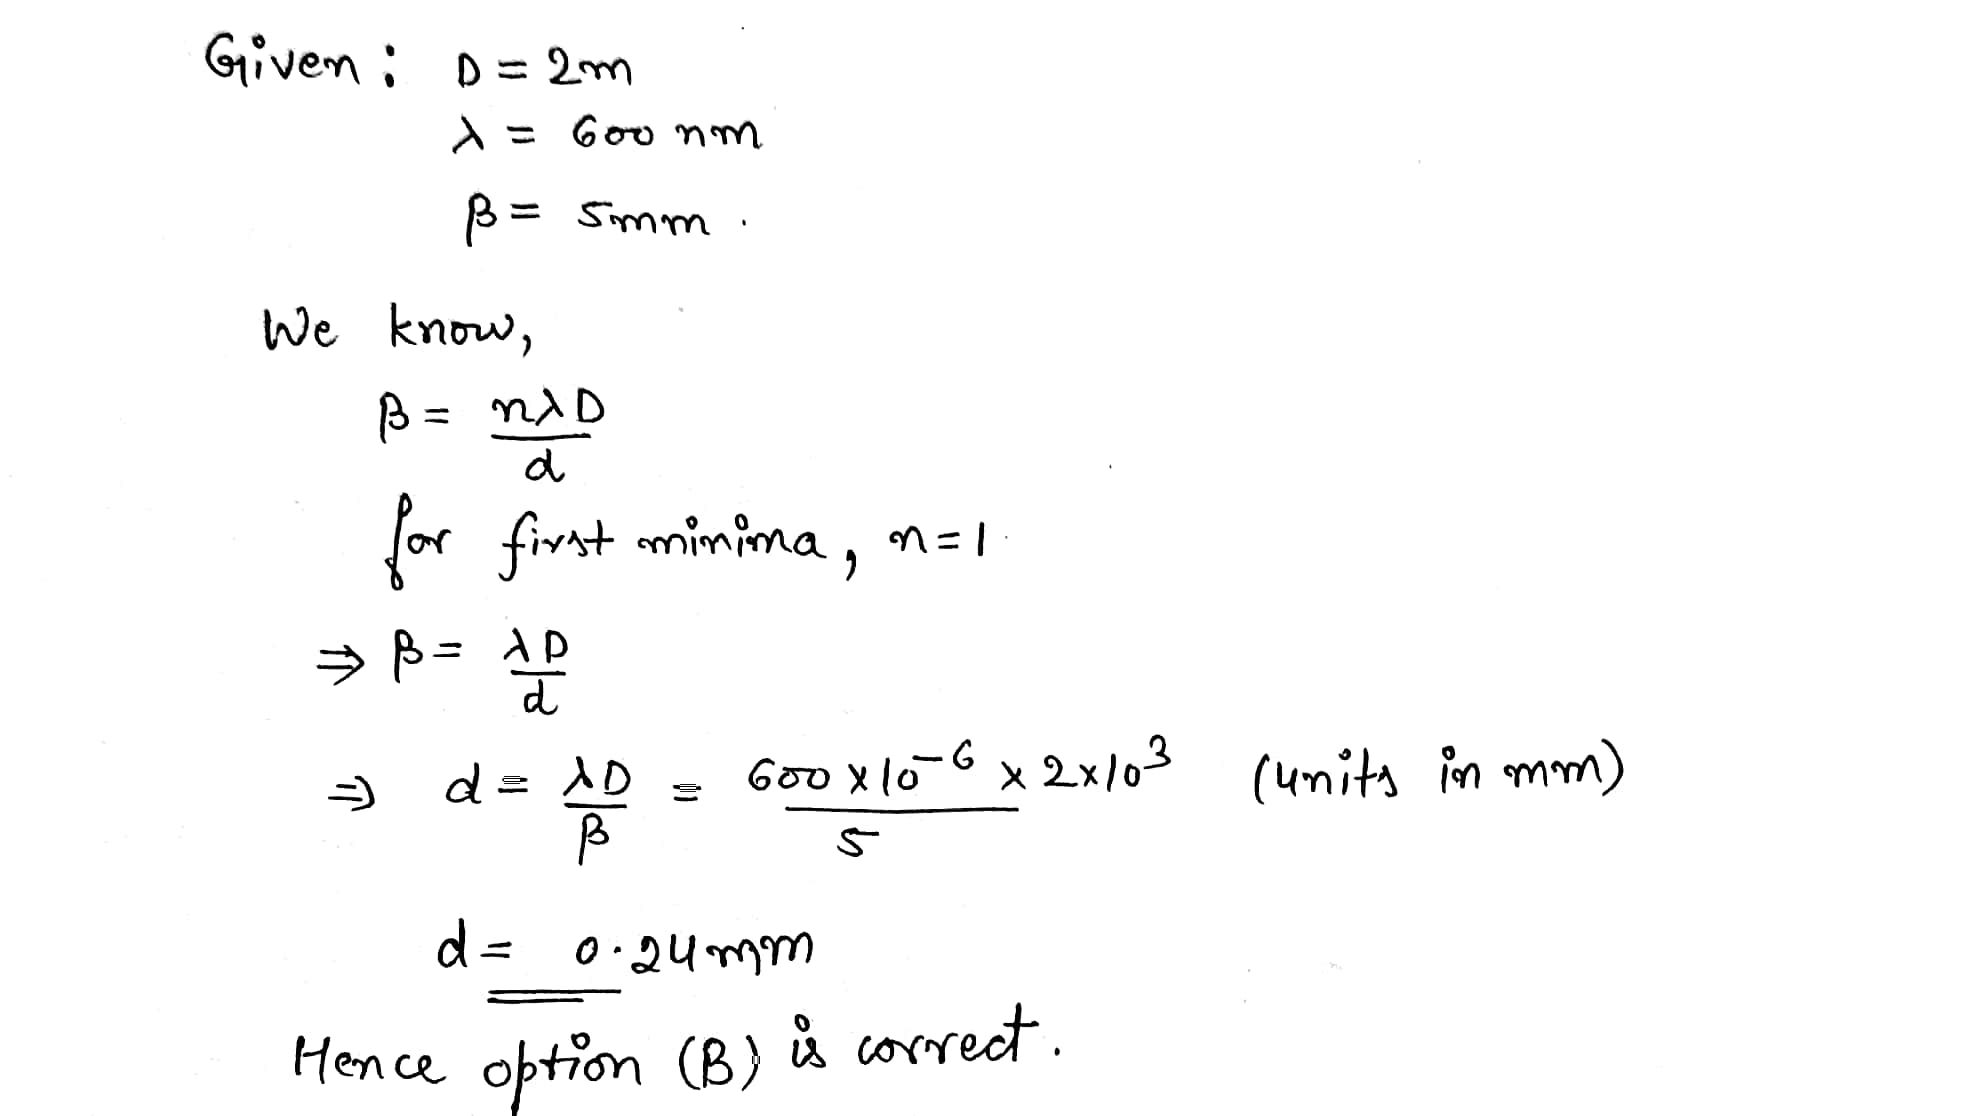 Given: D = 2m
λ = 600 nm
β = 5mm.
We know,
β = nλD/d
for first minima, n=1
⇒ β = λD/d
⇒ d = λD/β = 600 x 10⁻⁶ x 2x10³/5 (units in mm)
d = 0.24mm
Hence option (B) is correct.